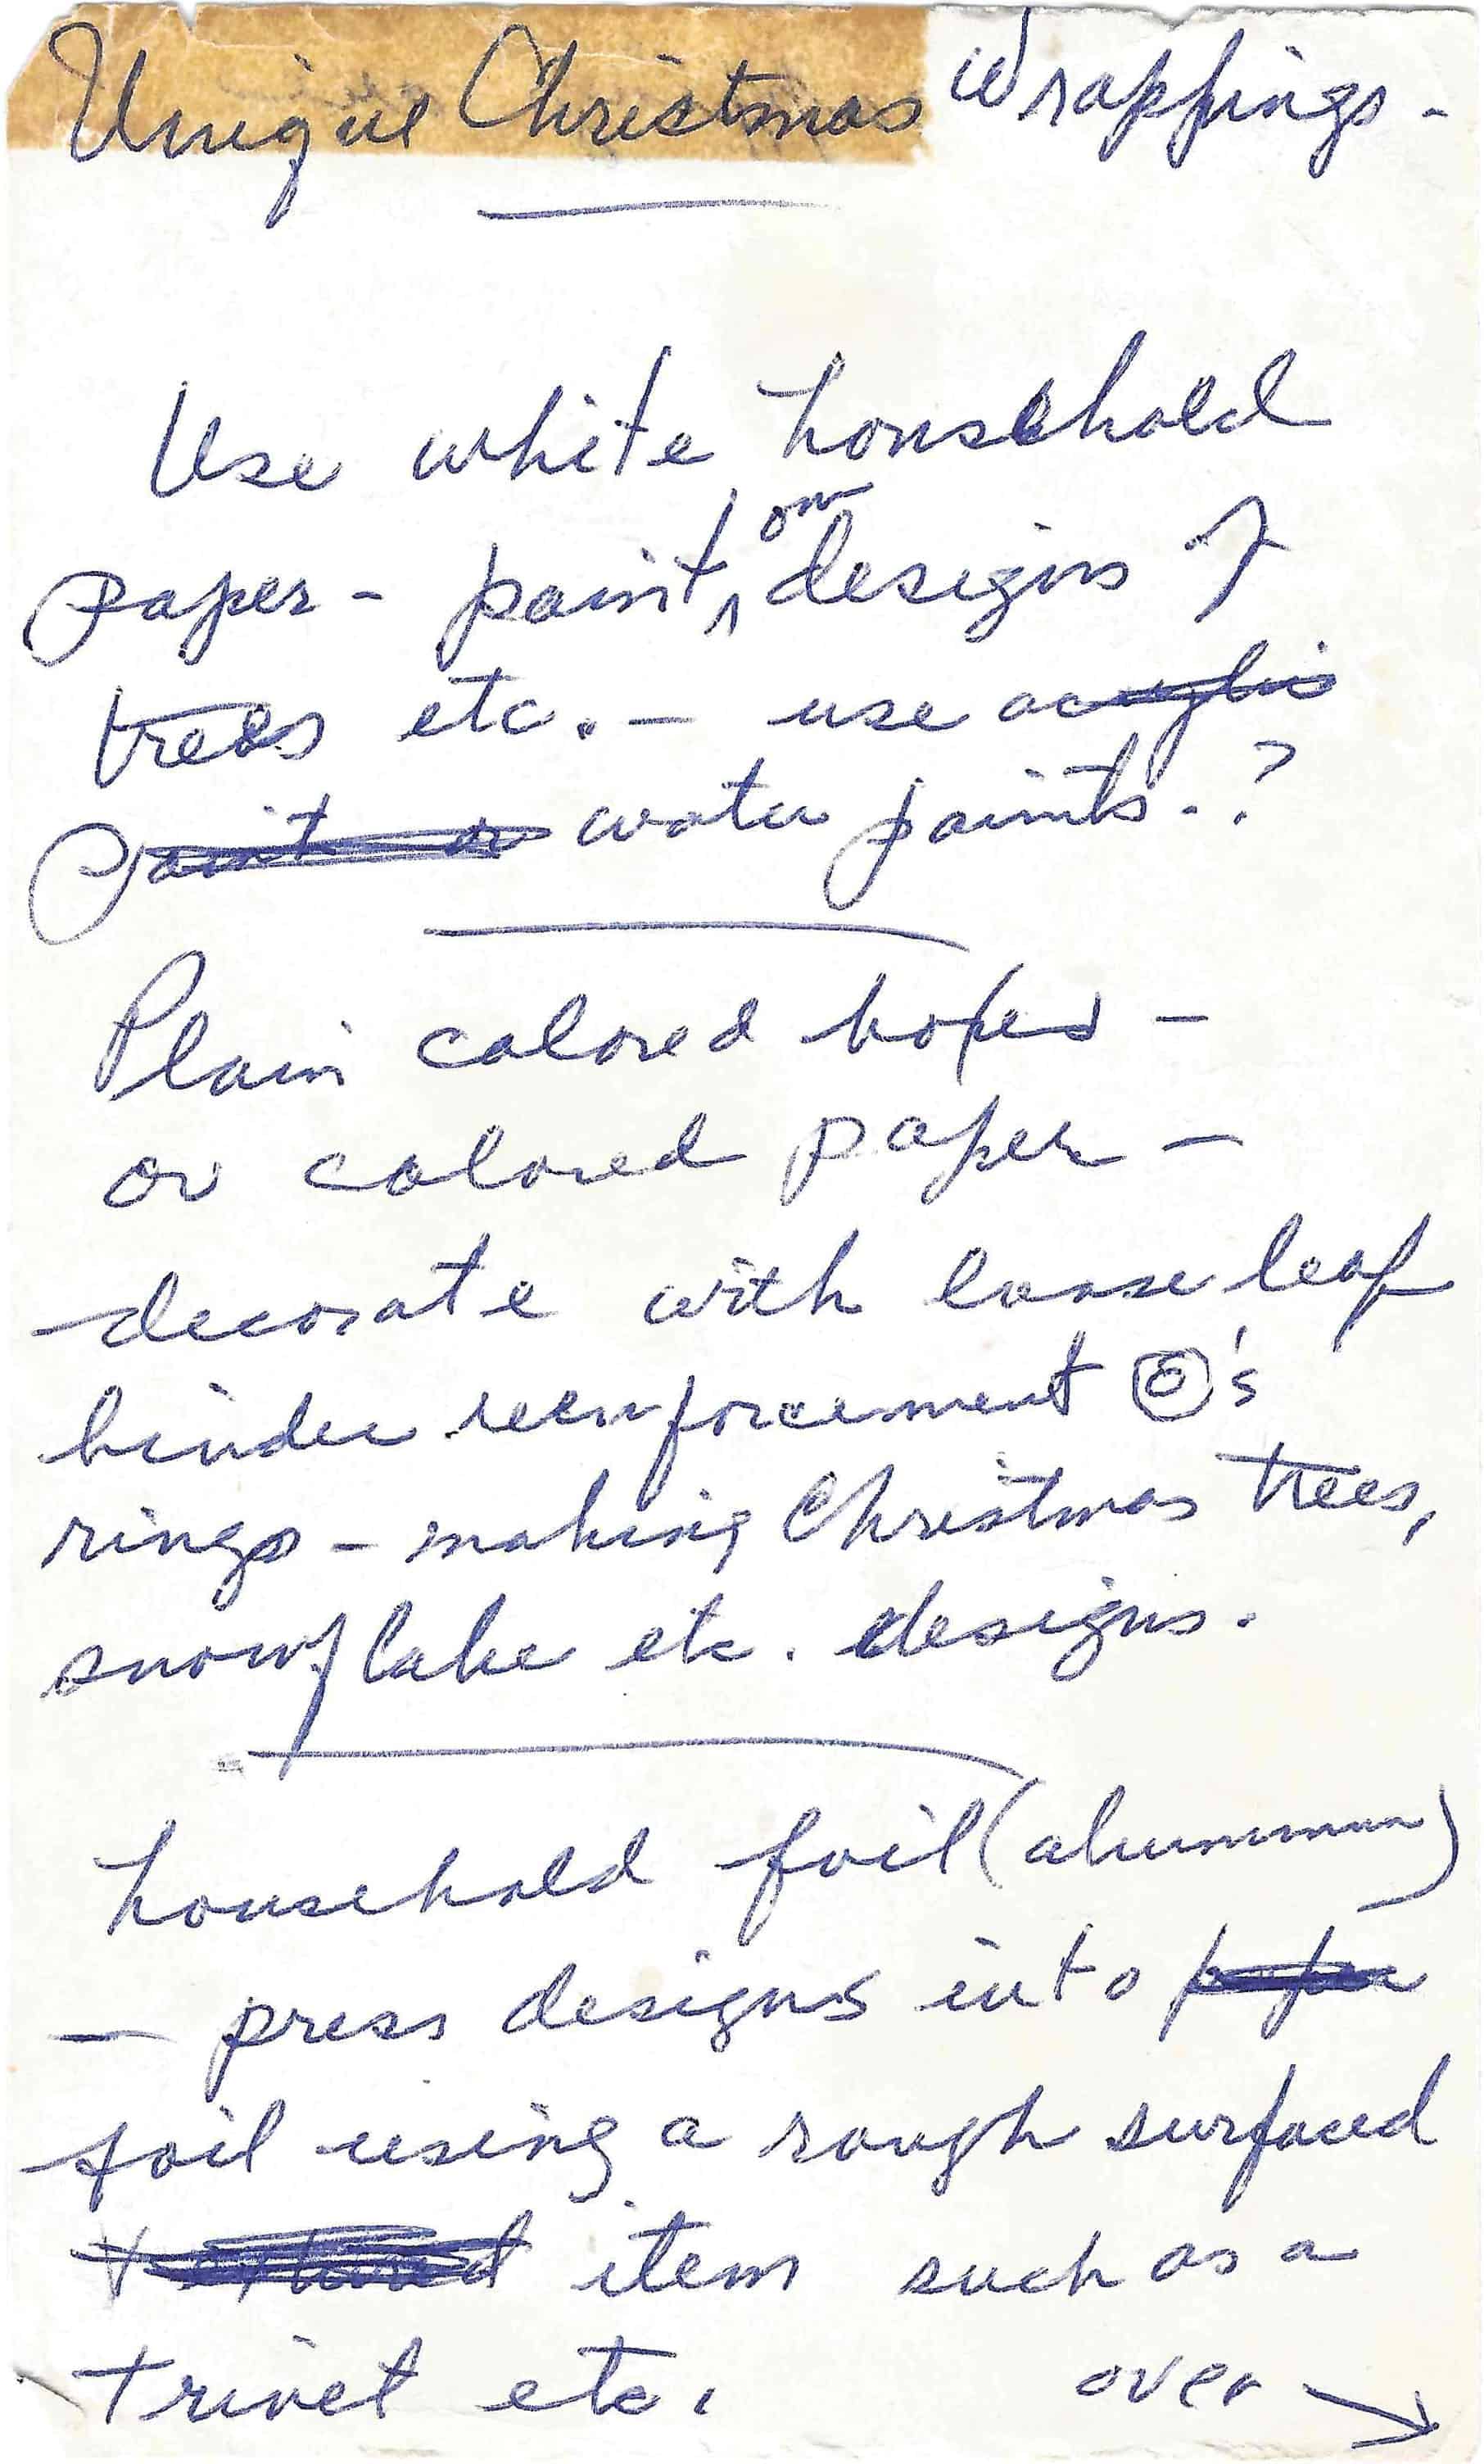 Unique Christmas Wrappings -
Use white household
paper - paint ^on designs of
trees etc. - use acrylic
paint or water paints. ?
Plain colored boxes -
or colored paper -
decorate with loose leaf
binder reenforcement ⓞ's
rings - making Christmas trees,
snowflake etc. designs.
household foil (aluminum)
- press designs into paper
foil using a rough surfaced
textured item such as a
trivet etc. over →